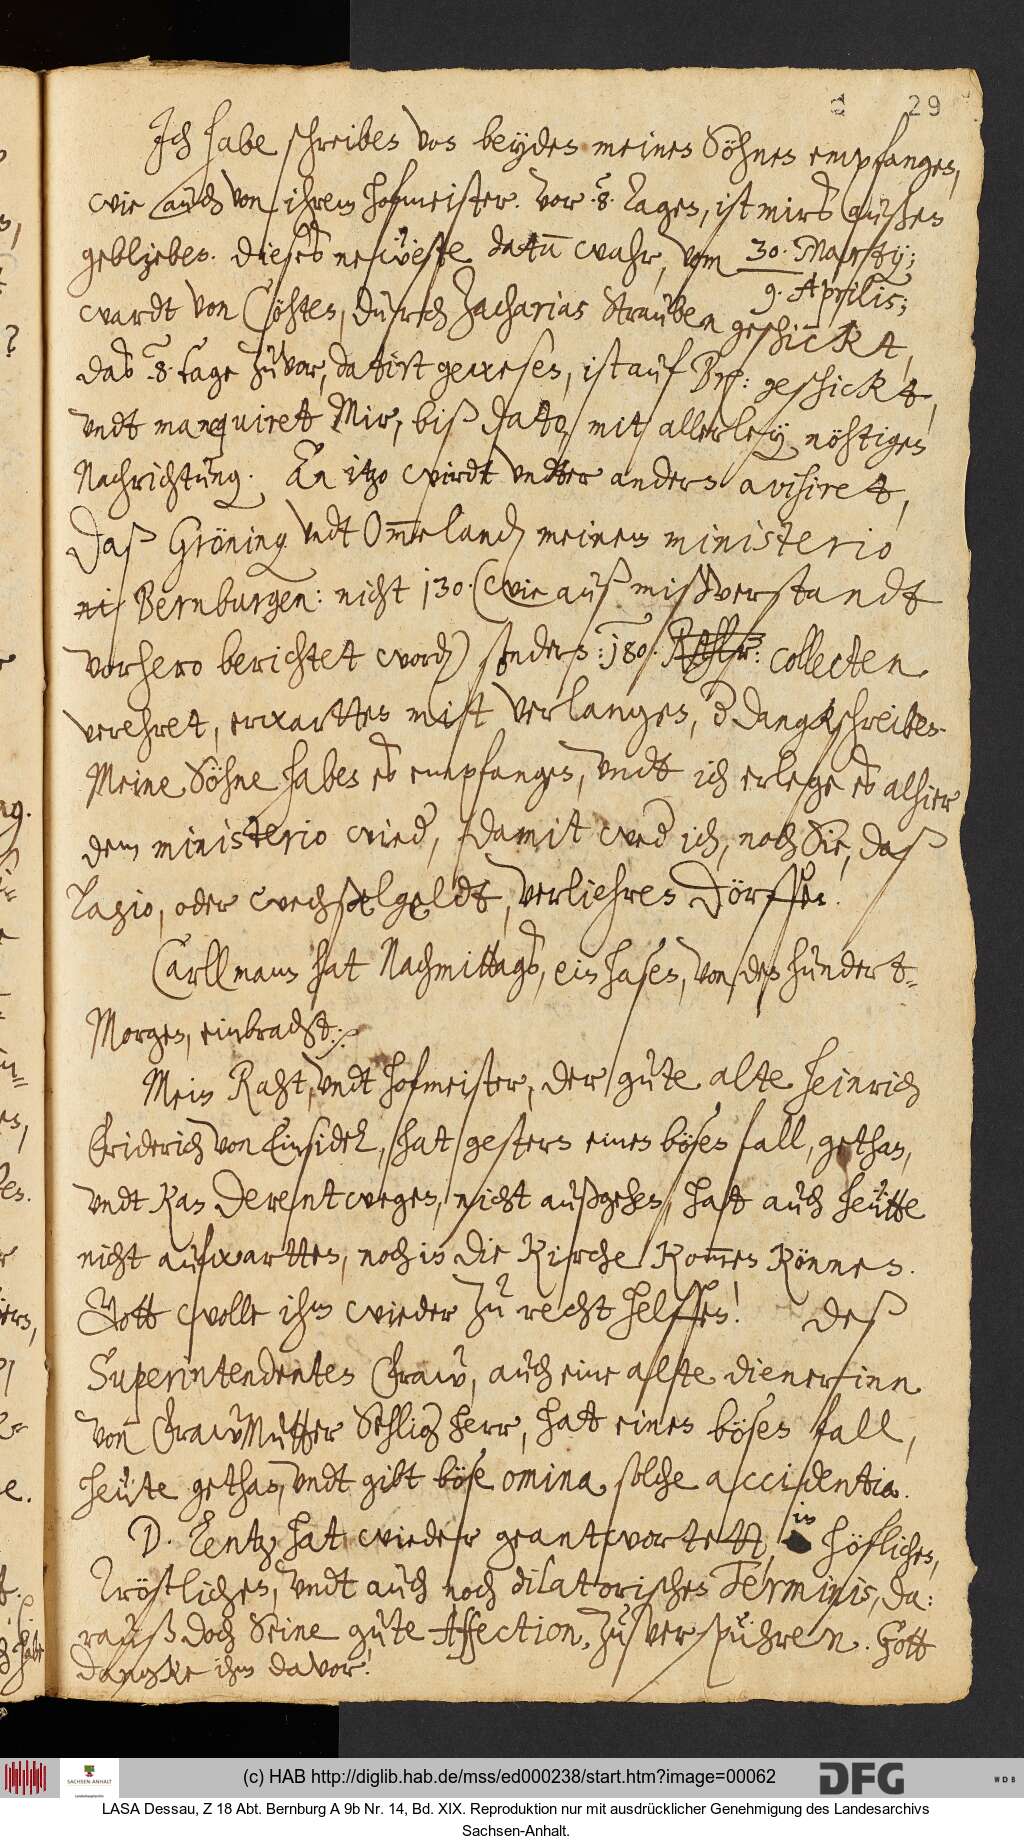 29
Ich habe schreiben von beyden meinen Söhnen empfangen,
wie auch von ihrem hofmeister. Vor .8. Tagen, ist mirs außen
geblieben. Dieses neẅeste datū wahr, vom 30. Martzij;
9. Aprilis;
wardt von Cöhten, durch Zacharias Strauben geschickt,
das .8. tage zuvor, datirt gewesen, ist auf Brſ: geschickt,
undt manquiret Mir, biß dato, mit allerley nöhtigen
Nachrichtung. En itzo wirdt undter anderm avisiret,
Daß Gröning undt Om̄eland, meinem ministerio
zu Bernburgen: nicht 130. (wie auß mißverstandt
vorhero berichtet word) sondern: 180. Rthlr: collecten
verehret, erwartten mitt verlangen, d Dangkschreiben.
Meine Söhne haben es empfangen, undt ich erlege es alhier
dem ministerio wied, damit wed ich, noch Sie, das
Lagio, oder wechselgeldt, verliehren dörffen.
Carllmann hat Nachmittags, ein hasen, von den hundert-
Morgen, einbracht.
Mein Raht, undt hofmeister, der gute alte Heinrich
Friderich von Einsidel, hat gestern einen bösen fall, gethan,
undt kan derentwegen, nicht außgehen, hatt auch heütte
nicht aufwartten, noch in die Kirche kom̄en können.
Gott wolle ihm wieder zu recht helffen! Des
Superintendenten Fraw, auch eine alte dienerinn
von FrawMutter Sehlig herr, hatt einen bösen fall,
heüte gethan, undt gibt böse omina, solche accidentia.
D. Lentz hat wieder geantwortett, in höflichen,
Tröstlichen, undt auch noch dilatorischen Terminis, da:
rauß doch Seine gute Affection, zu verspühren. Gott
dangke ihm davor!
(c) HAB http://diglib.hab.de/mss/ed000238/start.htm?image=00062
SACHSEN-ANHALT
DFG
WDB
LASA Dessau, Z 18 Abt. Bernburg A 9b Nr. 14, Bd. XIX. Reproduktion nur mit ausdrücklicher Genehmigung des Landesarchivs
Sachsen-Anhalt.